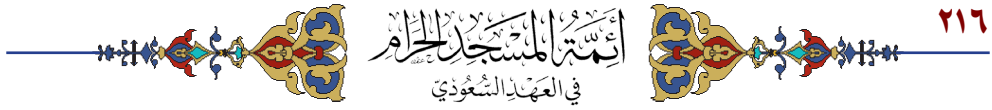 ٢١٦
أَئِمَّةُ الْمَسْجِدِ الْحَرَامِ
فِي الْعَهْدِ السُّعُودِيِّ